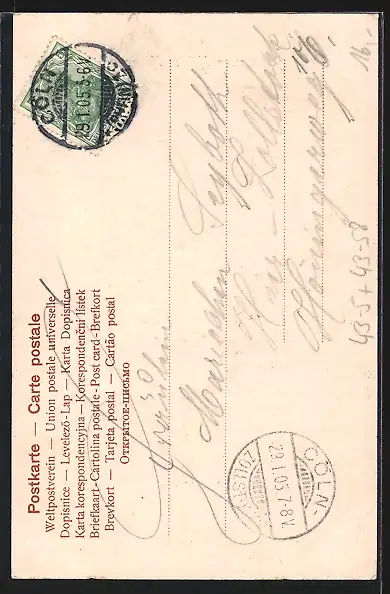 Postkarte — Carte postale
Weltpostverein — Union postale universelle
Dopisnice — Levelező-Lap — Karta Dopisnica
Karta korespondencyjna — Korespondenční lístek
Briefkaart-Cartolina postale-Post card-Brefkort
Brevkort — Tarjeta postal — Cartão postal
Открытое-письмо
CÖLN
29.1.05.3-
Fräulein
Mariechen
Cöln - Zollstock
Höningerweg
16.-
43-5+43-58
CÖLN-
29.1.05.7-8V.
ZOLLSTOCK